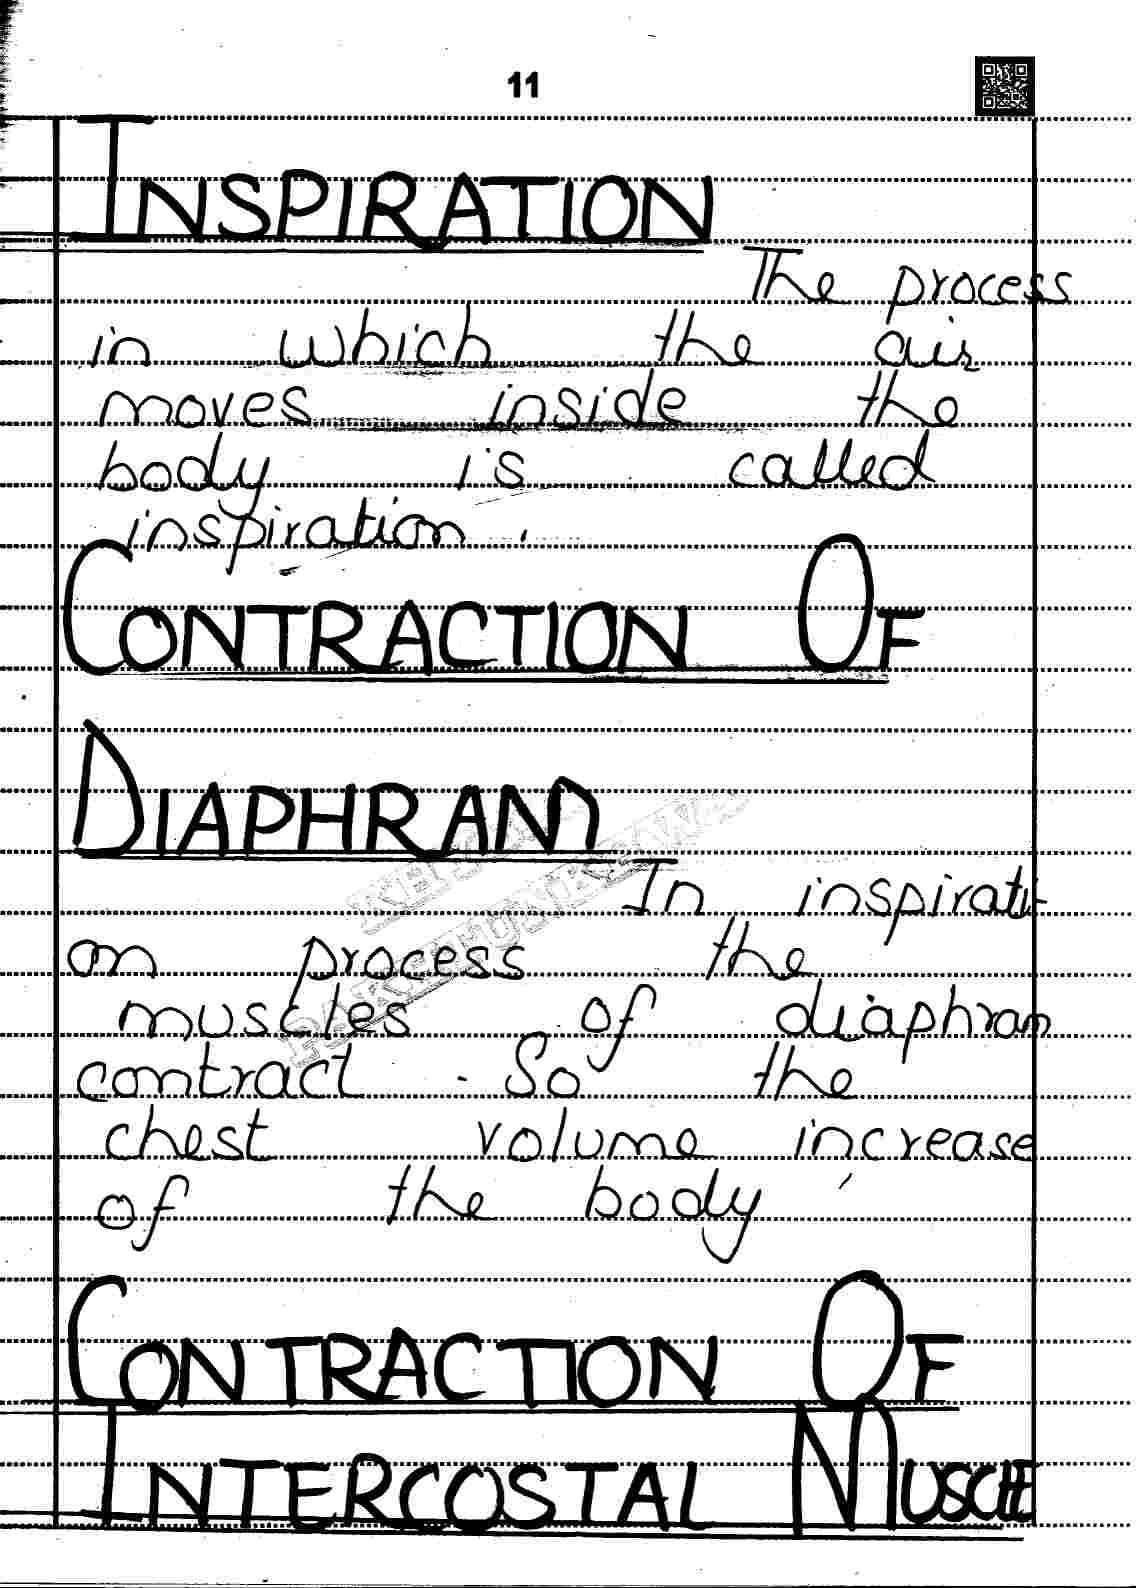 11
INSPIRATION
The process
in which the air
moves inside the
body is called
inspiration.
CONTRACTION OF
DIAPHRAM
In inspirati-
on process the
muscles of diaphram
contract. So the
chest volume increase
of the body
CONTRACTION OF
INTERCOSTAL MUSCLE